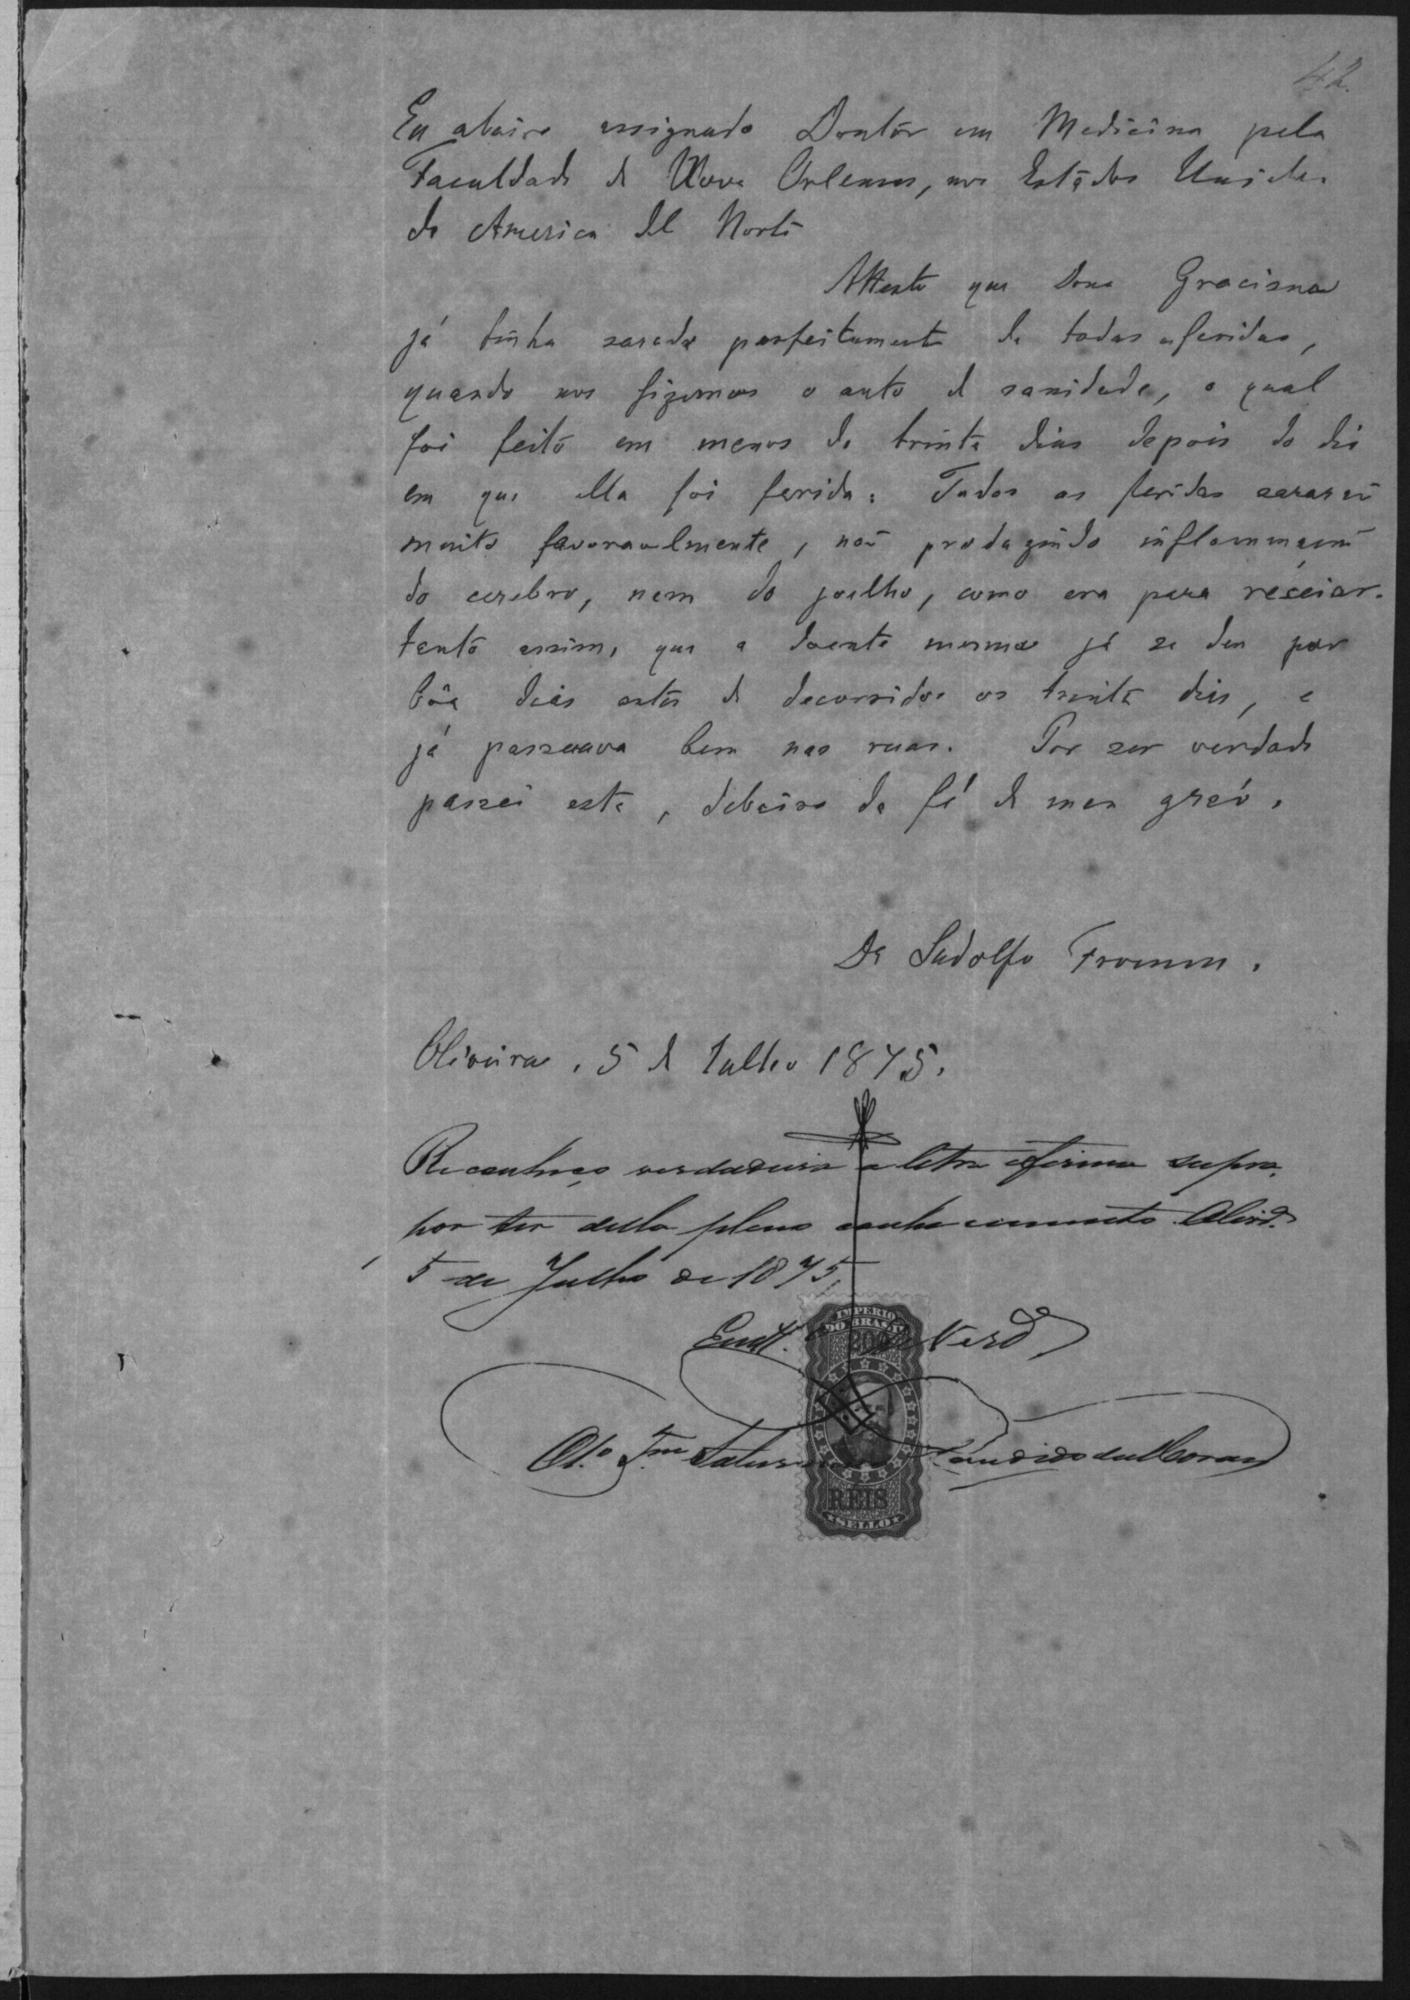 42.
Eu abaixo assignado Doutôr em Medicina pela
Faculdade de Nova Orleans, nos Estados Unidos
da America del Norte
Attesto que Dona Graciana
já tinha sarada perfeitamente de todas as feridas,
quando nos fizemos o auto de sanidade, o qual
foi feito em menos de trinta dias depois do dia
em que ella foi ferida. Todas as feridas sararaõ
muito favoravelmente, naõ produzindo inflammaçaõ
do cerebro, nem do joelho, como era para receiar.
tanto assim, que a doente mesma já se deu por
bôa dias antes de decorridos os trinta dias, e
já passeava bem nas ruas. Por ser verdade
passei este, debaixo da fé de meu gráo.
Dr Ludolfo Fromm.
Oliveira, 5 de Julho 1875.
Reconheço verdadeira a letra e firma supra,
por ter della pleno conhecimento. Olivrª.
5 de Julho de 1875.
Em testº de verdº
IMPERIO
DO BRASIL
200
REIS
SELLO
Candido de Moraes